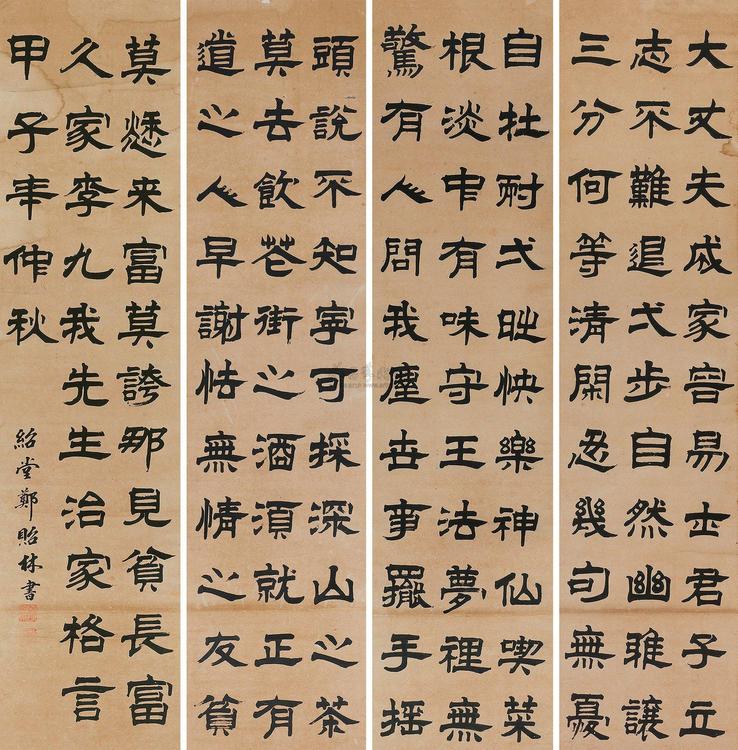 大丈夫成家容易士君子立
志不難退弌步自然幽雅讓
三分何等清閑忍幾句無憂
自在耐弌時快樂神仙喫菜
根淡中有味守王法夢裡無
驚有人問我塵世事擺手搖
頭說不知寧可採深山之茶
莫去飲花街之酒須就正有
道之人早謝怙無情之友貧
莫愁来富莫誇那見貧長富
久家李九我先生治家格言
甲子年仲秋
紹堂鄭貽林書